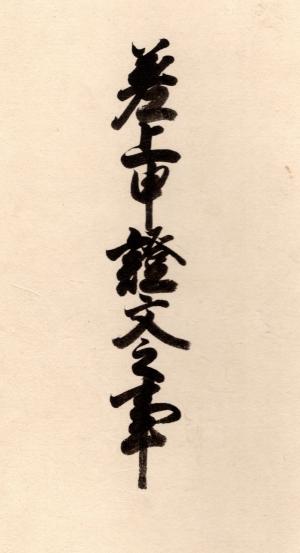 差上申證文之事